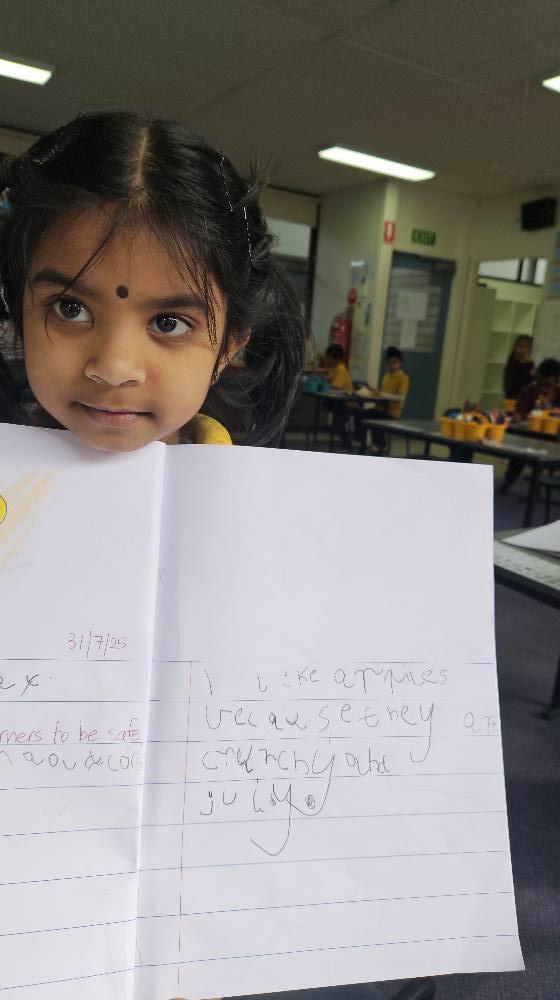 EXIT
31/7/25
ex.
rners to be safe
I like apples
because they are
crunchy and
juicy.